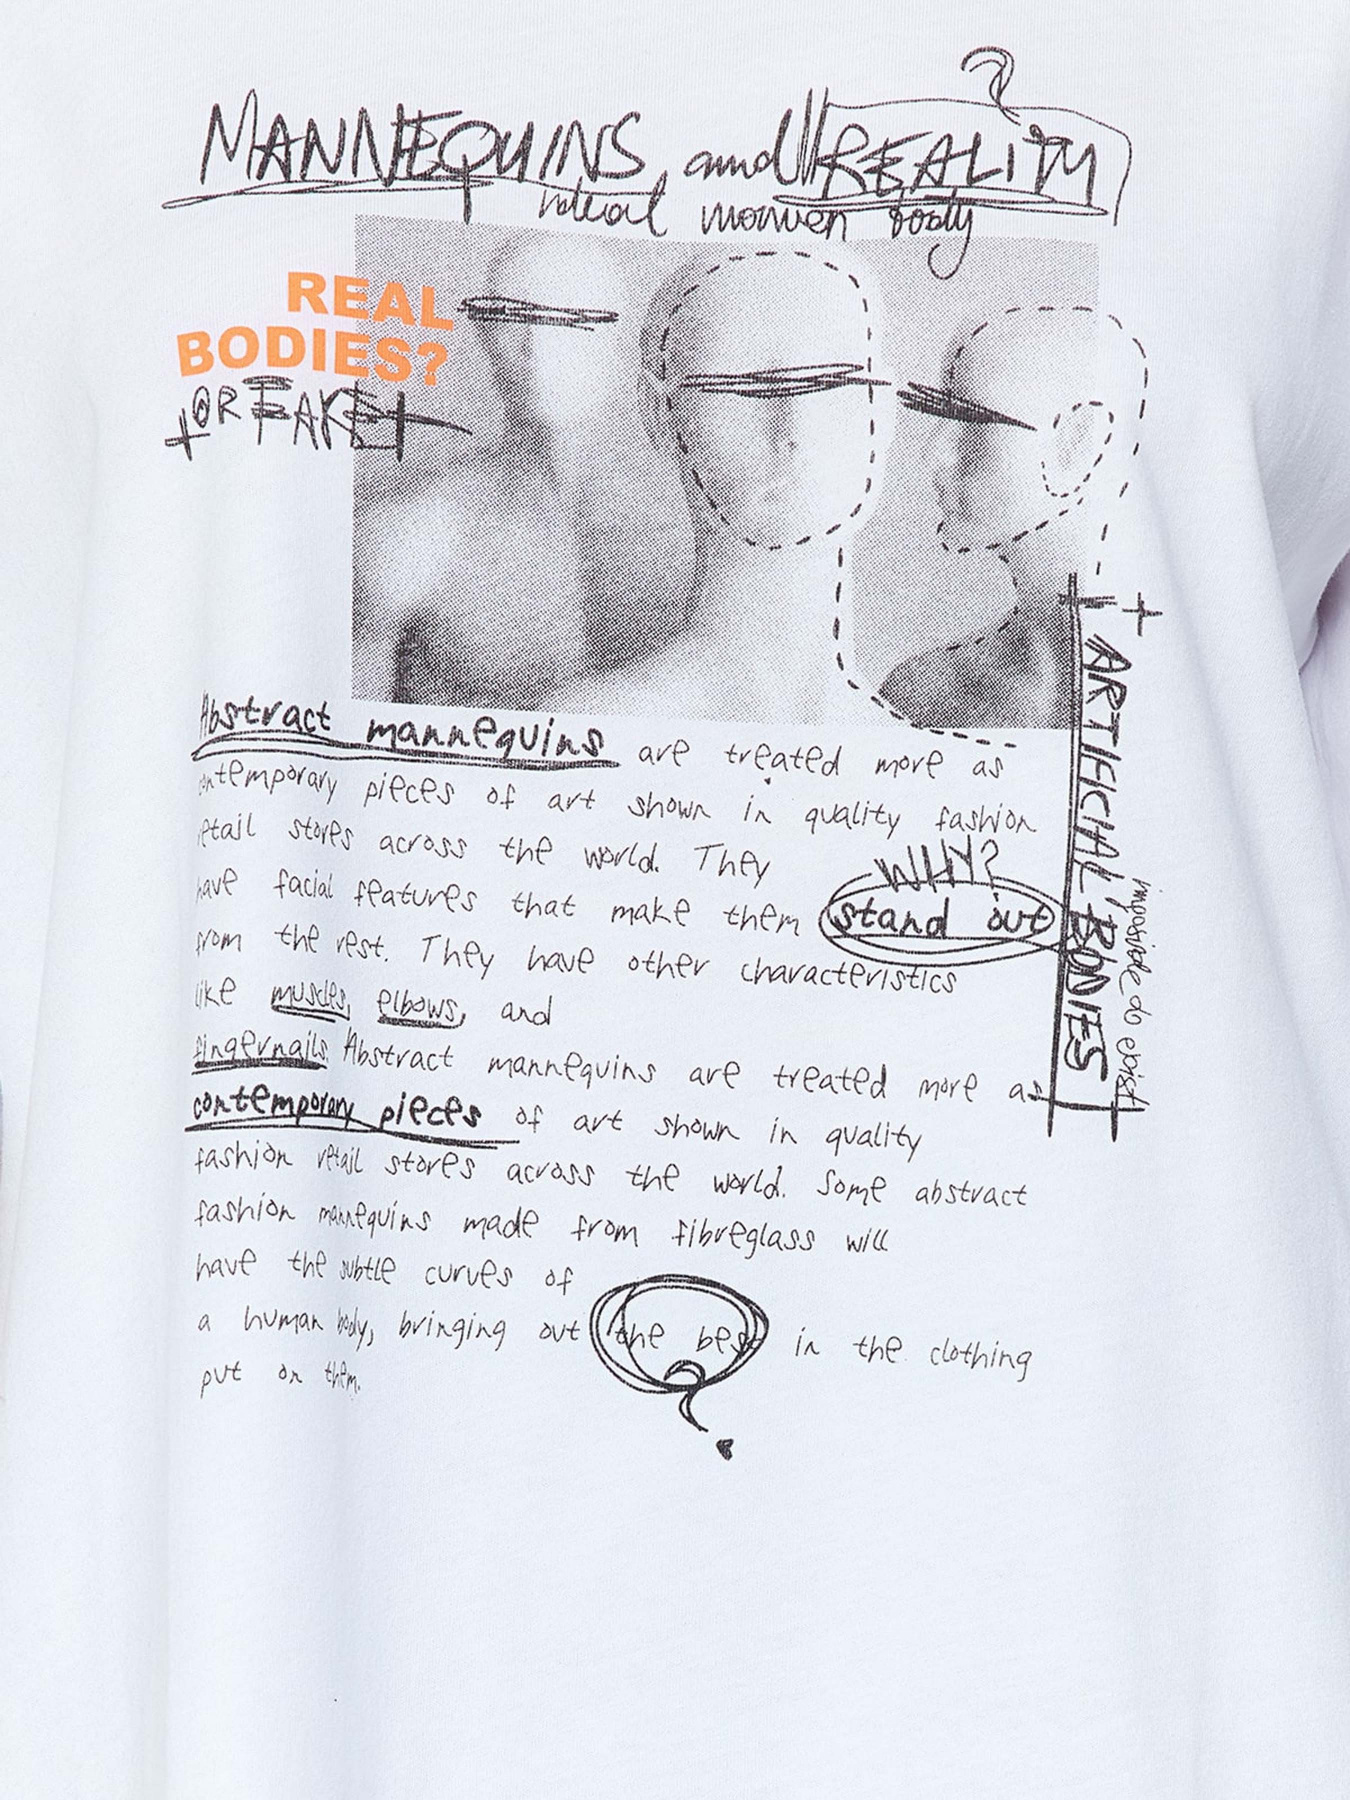 ?
MANNEQUINS and REALITY
ideal women body
REAL
BODIES?
OR FAKE
Abstract mannequins are treated more as
contemporary pieces of art shown in quality fashion
retail stores across the world. They
WHY?
have facial features that make them stand out
from the rest. They have other characteristics
like muscles, elbows, and
fingernails. Abstract mannequins are treated more as
contemporary pieces of art shown in quality
fashion retail stores across the world. Some abstract
fashion mannequins made from fibreglass will
have the subtle curves of
a human body, bringing out the best in the clothing
put on them.
?
ARTIFICIAL BODIES
imposible to exist